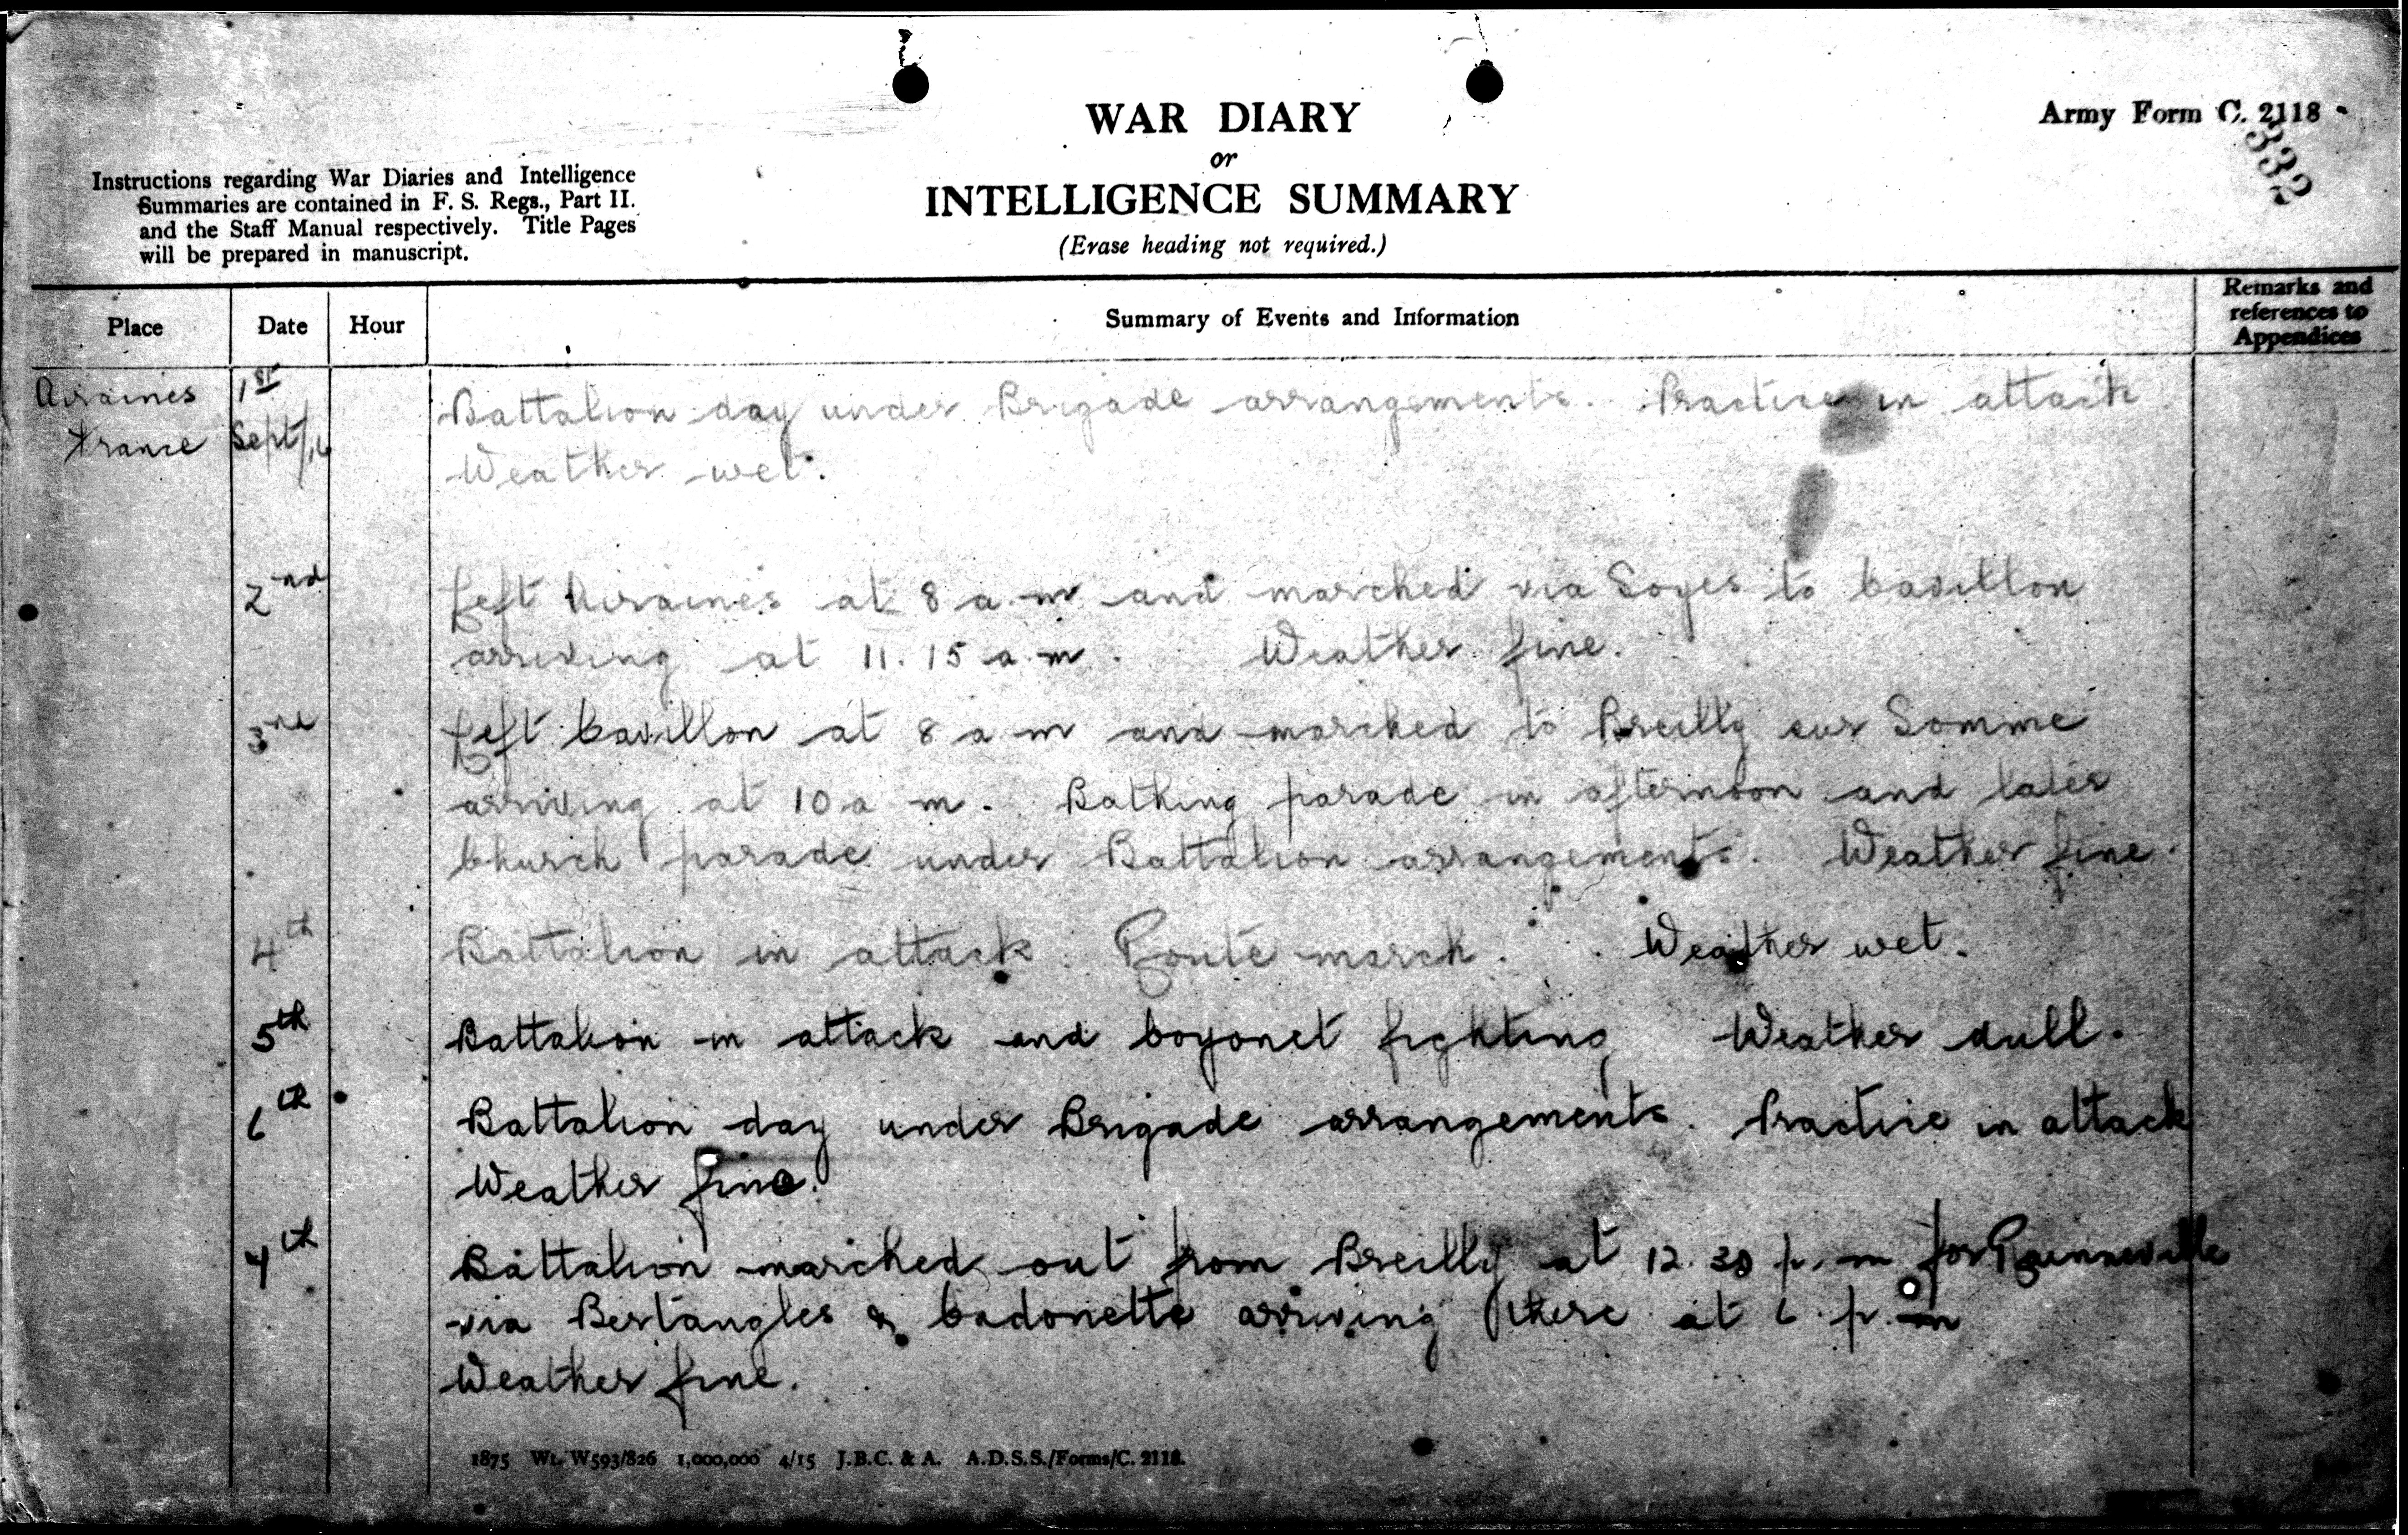 WAR DIARY
or
INTELLIGENCE SUMMARY
(Erase heading not required.)
Army Form C. 2118
332
Instructions regarding War Diaries and Intelligence
Summaries are contained in F. S. Regs., Part II.
and the Staff Manual respectively. Title Pages
will be prepared in manuscript.
Place Date Hour Summary of Events and Information Remarks and references to Appendices
Airaines 1st Battalion day under Brigade arrangements. Practice in attack
France Sept/16 Weather wet.
2nd Left Airaines at 8 a.m and marched via Soues to Cavillon
arriving at 11.15 a.m. Weather fine.
3rd Left Cavillon at 8 a m and marched to Breilly sur Somme
arriving at 10 a m. Bathing parade in afternoon and later
Church parade under Battalion arrangements. Weather fine.
4th Battalion in attack. Route march. Weather wet.
5th Battalion in attack and bayonet fighting Weather dull.
6th Battalion day under Brigade arrangements. Practice in attack
Weather fine.
7th Battalion marched out from Breilly at 12.30 p.m for Rainneville
via Bertangles & Cadonette arriving there at 6 p.m
Weather fine.
1875 Wt. W593/826 1,000,000 4/15 J.B.C. & A. A.D.S.S./Forms/C. 2118.